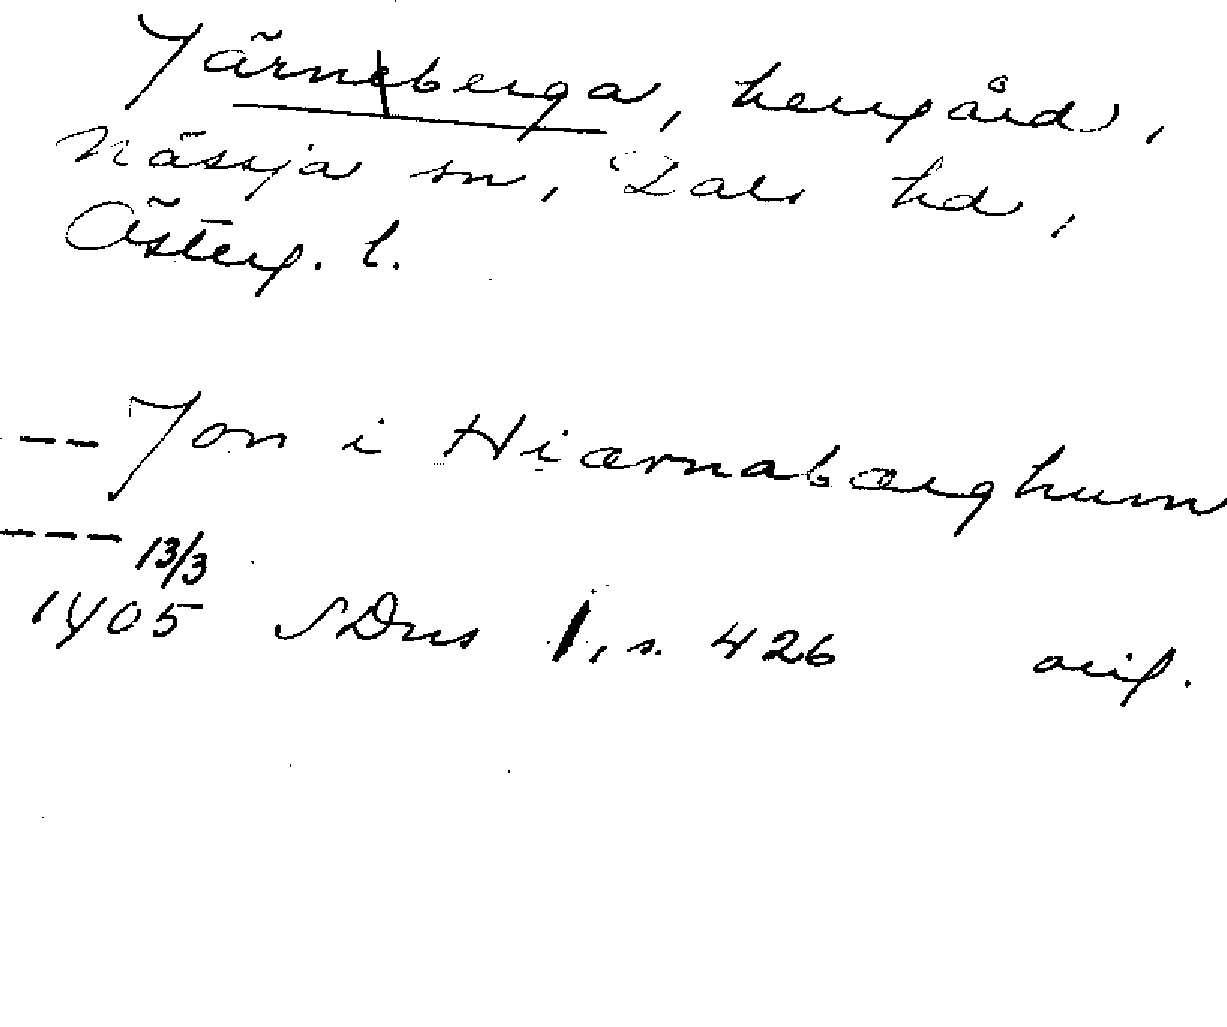 Järneberga, herrgård,
Nässja sn, Dals hd,
Österg. l.
--- Jon i Hiærnabærghum
---- 13/3
1405 SDns 1, s. 426 orig.